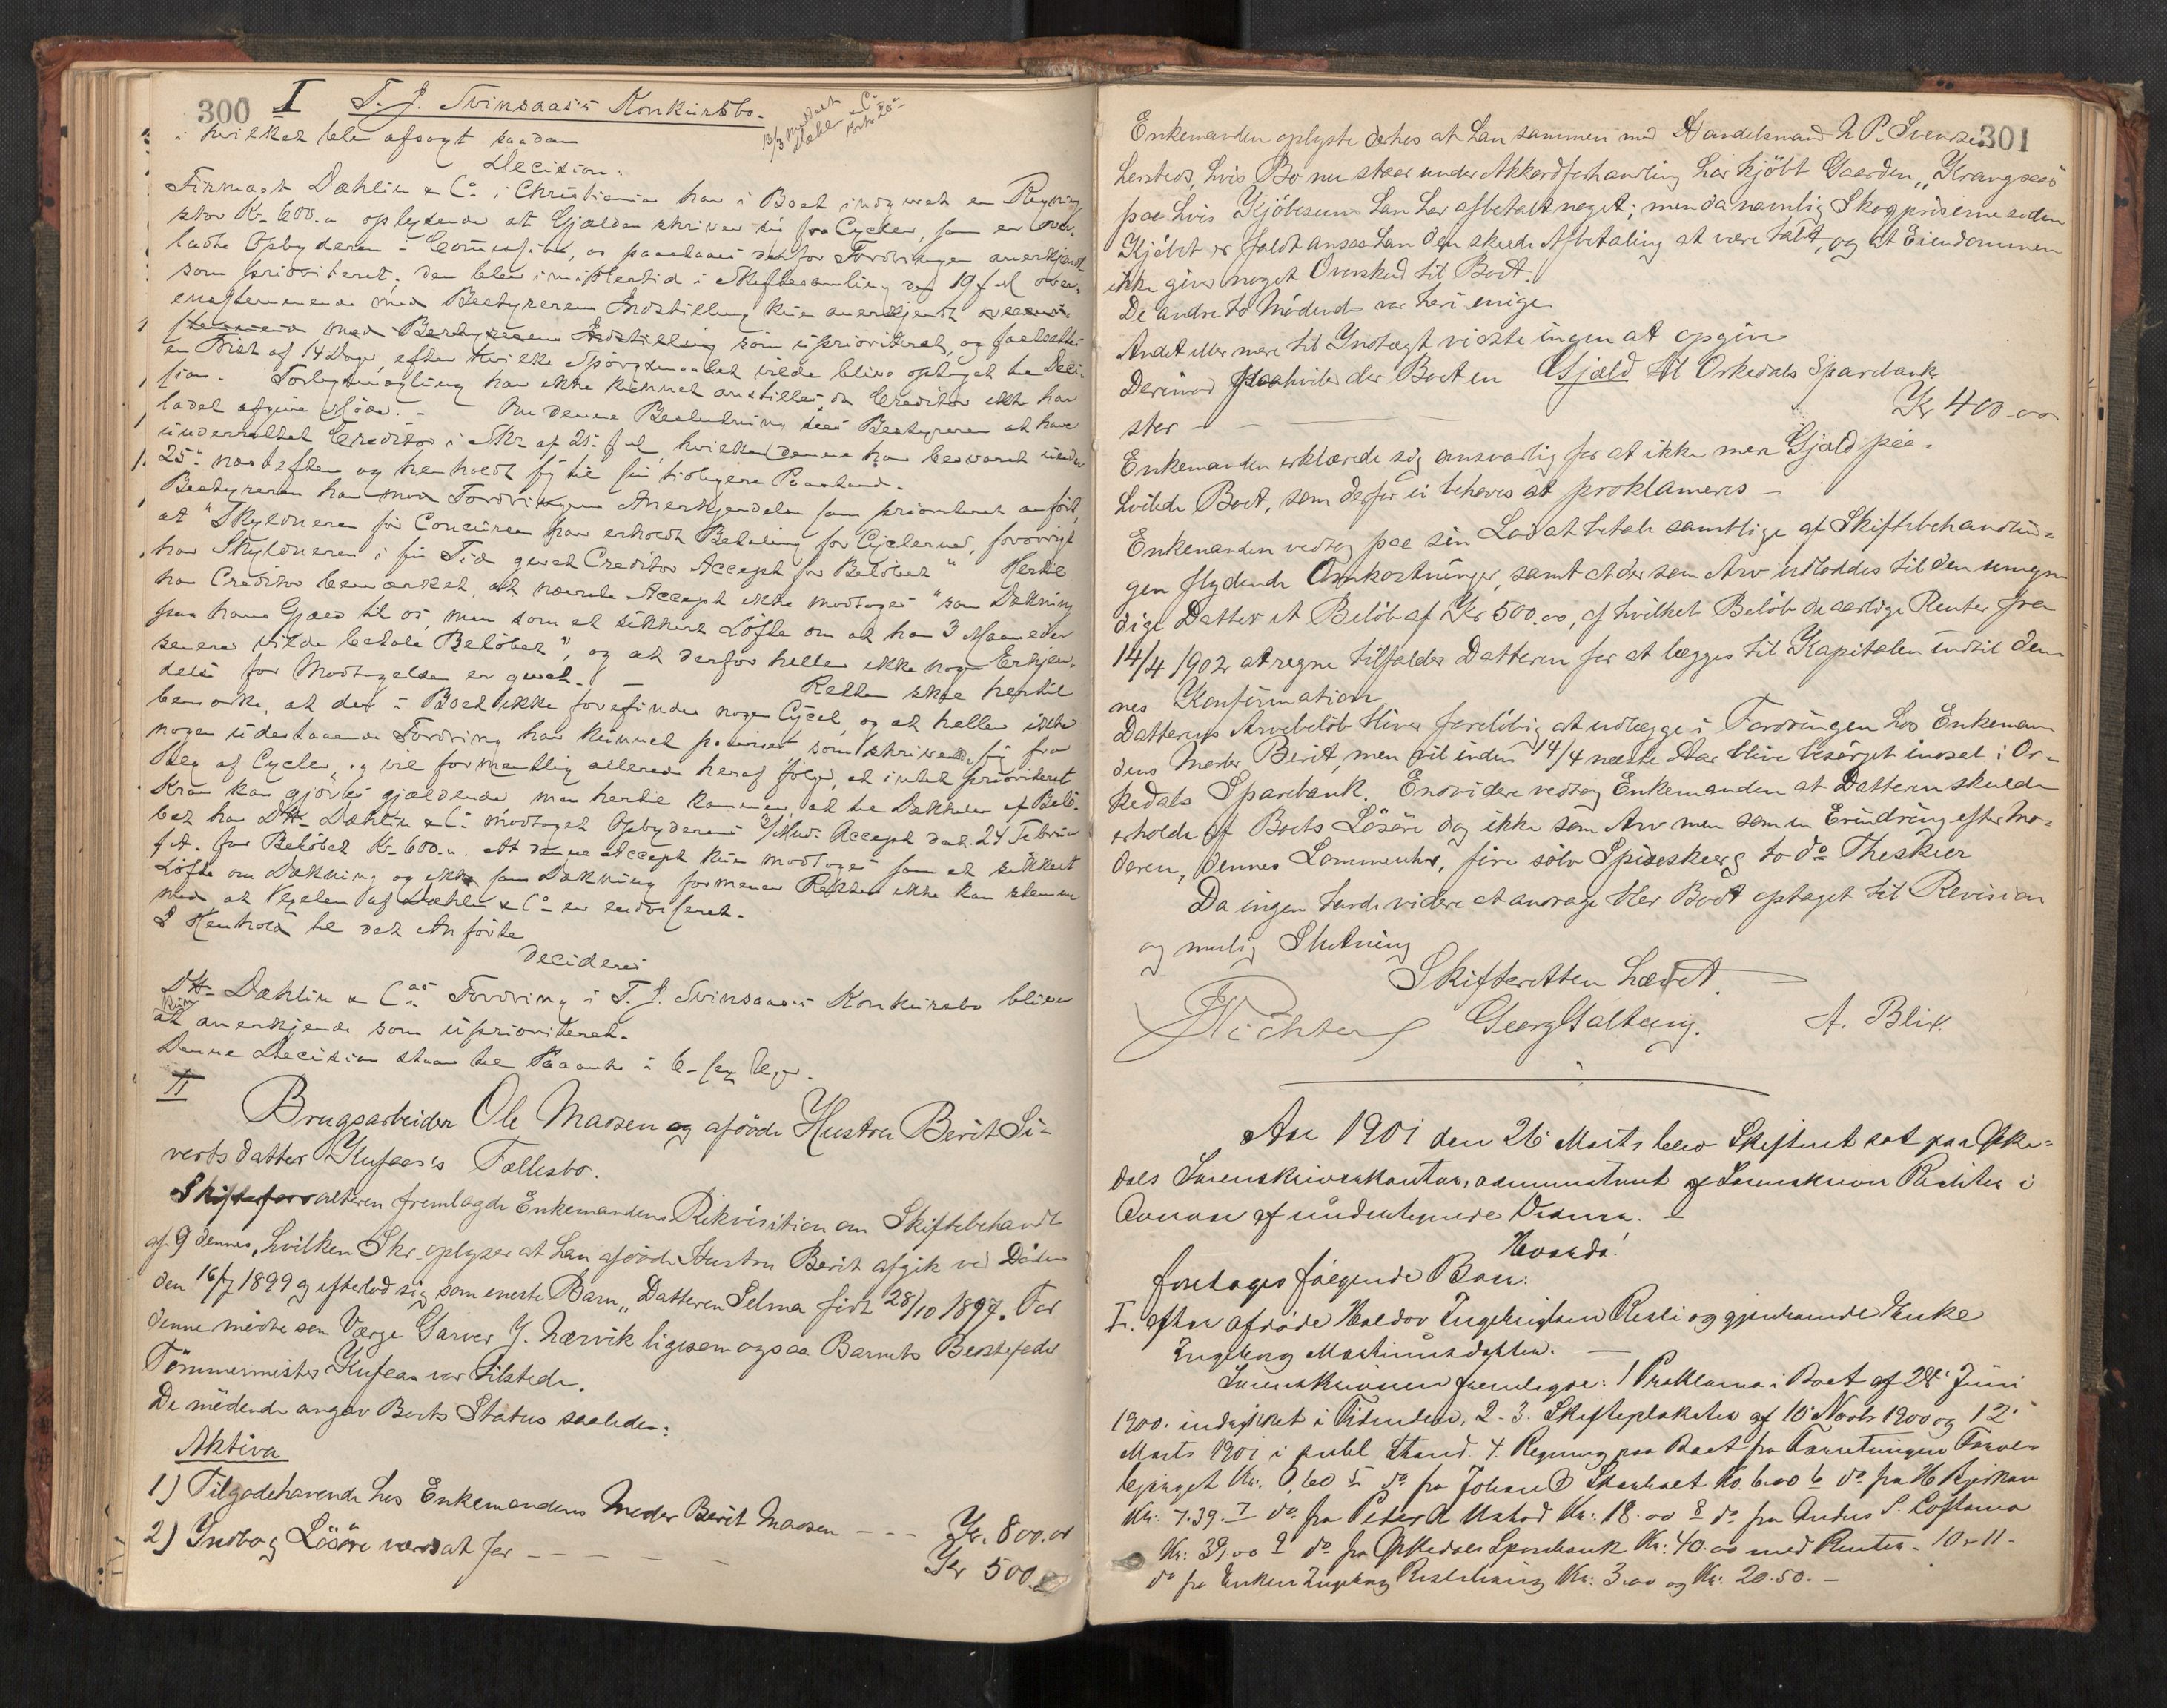 300 I T. J. Svinsaas's Konkursbo.
i hvilket blev afsagt saadan
Decision:
Firmaet Dæhlin & Co i Christiania har i Boet indgivet en Regning
stor Kr 600.00 oplydende at Gjælden skriver sig fra Cycler, som er over-
ladte Opbyderen i Commission, og paastaaes derfor Fordringen anerkjendt
som prioriteret; den blev imidlertid i Skiftesamling den 19 f. M. over-
ensstemmende med Bestyrerens Indstilling kun anerkjendt
med Bestyrerens Indstilling som uprioriteret, og fastsattes
en Frist af 14 Dage, efter hvilke Spørgsmaalet vilde blive optaget til Deci-
sion. Forligsmægling har ikke kunnet anstilles da Creditor ikke har
ladet afgive Møde. - Om denne Beslutning sees Bestyreren at have
underrettet Creditor i Skr. af 21. f. M., hvilken denne har besvaret under
25. næstefter og henholdt sig til sin tidligere Paastand.
Bestyreren har mod Fordringens Anerkjendelse som prioriteret anført,
at "Skyldneren før Concursen har erholdt Betaling for Cyclerne, forøvrigt
har Skyldneren i sin Tid givet Creditor Accept for Beløbet" Hertil
har Creditor bemærket, at nævnte Accept ikke modtoges "som Dækning
for hans Gjæld til os, men som et sikkert Løfte om at han 3 Maaneder
senere vilde betale Beløbet", og at derfor heller ikke nogen Erkjen-
delse for Modtagelsen er givet. - Retten skal hertil
bemærke, at der i Boet ikke forefindes nogen Cycel, og at heller ikke
nogen udestaaende Fordring har kunnet paavises som skrivende sig fra
Salg af Cycler, og vil formentlig allerede heraf følge, at intet prioriteret
Krav kan gjøres gjældende, men hertil kommer, at til Dækkelse af Belø-
bet har D'Hrr Dæhlin & Co modtaget Opbyderens 3/Mds Accept dat. 24 Februar
f. A. for Beløbet Kr. 600.00. At denne Accept kun modtoges som et sikkert
Løfte om Dækning og ikke som Dækning formener Retten ikke kan stemme
med at Vexelen af Dæhlin & Co er endosseret.
I Henhold til det Anførte
decideres
D'Hrr Dæhlin & Cos Fordring i T. J. Svinsaas's Konkursbo bliver
kun
at anerkjende som uprioriteret.
Denne Decision staar til Paaanke i 6 - sex Uger.
II
Brugsarbeider Ole Maosen og afdøde Hustru Berit Si-
vertsdatter Kufaas's Fællesbo.
Skifteforvalteren fremlagde Enkemandens Rekvisition om Skiftebehandl.
af 9 dennes, hvilken Skr. oplyser at hans afdøde Hustru Berit afgik ved Døden
den 16/7 1899 og efterlod sig som eneste Barn, Datteren Selma født 28/10 1897. For
denne mødte som Værge Garver J. Nærvik ligesom ogsaa Barnets Bestefader
Tømmermester Kufaas var tilstede.
De mødende angav Boets Status saaledes:
Aktiva
1) Tilgodehavende hos Enkemandens Moder Berit Maosen - - - Kr. 800.00
2) Indbo og Løsøre værdsat for - - - - - Kr 500.
301
Enkemanden oplyste derhos at han sammen med Handelsmand N P. Svendsen
hersteds, hvis Bo nu staar under Akkordforhandling har kjøbt Gaarden "Krangsaas"
paa hvis Kjøbesum han har afbetalt noget; men da navnlig Skogpriserne siden
Kjøbet er faldt ansaa han den skeede Afbetaling at være tabt, og at Eiendommen
ikke giver noget Overskud til Boet.
De andre to Mødende var heri enige
Andet eller mere til Indtægt vidste ingen at opgive
Derimod paahviler der Boet en Gjæld til Orkedals Sparebank
stor - - - Kr 400.00
Enkemanden erklærede sig ansvarlig for at ikke mere Gjæld paa-
hvilede Boet, som derfor ei behøves at proklameres -
Enkemanden vedtog paa sin Lod at betale samtlige af Skiftebehandlin-
gen flydende Omkostninger, samt at der som Arv udloddes til den umyn-
dige Datter et Beløb af Kr 500.00, af hvilket Beløb de aarlige Renter fra
14/4 1902 at regne tilfalder Datteren for at lægges til Kapitalen indtil den-
nes Konfirmation
Datterens Arvebeløb bliver foreløbig at udlægge i Fordringen hos Enkeman-
dens Moder Berit, men vil inden 14/4 næste Aar blive besørget indsat i Or-
kedals Sparebank. Endvidere vedtog Enkemanden at Datteren skulde
erholde af Boets Løsøre dog ikke som Arv men som en Erindring efter Mo-
deren, dennes Lommeuhr, fire sølv Spiseskeer og to do Theskeer
Da ingen havde videre at andrage blev Boet optaget til Revision
og mulig Slutning
Skifteretten hævet.
Richter Georg Galtung. A. Blix.
Aar 1901 den 26 Marts blev Skifteret sat paa Orke-
dals Sorenskriverkontor, administreret af Sorenskriver Richter i
Overvær af undertegnede Vidner.
Hvorda!
foretages følgende Boer:
I. efter afdøde Haldor Ingebrigtsen Risli og gjenlevende Enke
Ingeborg Martinusdatter. -
Sorenskriveren fremlagde: 1 Proklama i Boet af 28 Juni
1900. indrykket i Tidender, 2-3. Skifteplakater af 10 Novbr 1900 og 12
Marts 1901 i publ. Stand. 4. Regning paa Boet fra Forretningen
Kr. 0,60 5 do fra Johan O Kr. 6.00 6 do fra
Kr: 7.39. 7 do. fra Peter A Ustad Kr: 18.00 8 do fra Anders S.
Kr: 39.00 9 do fra Orkedals Sparebank Kr: 40.00 med Renter. 10 & 11.
do fra Enken Ingeborg Kr: 3.00 og Kr: 20.50. -